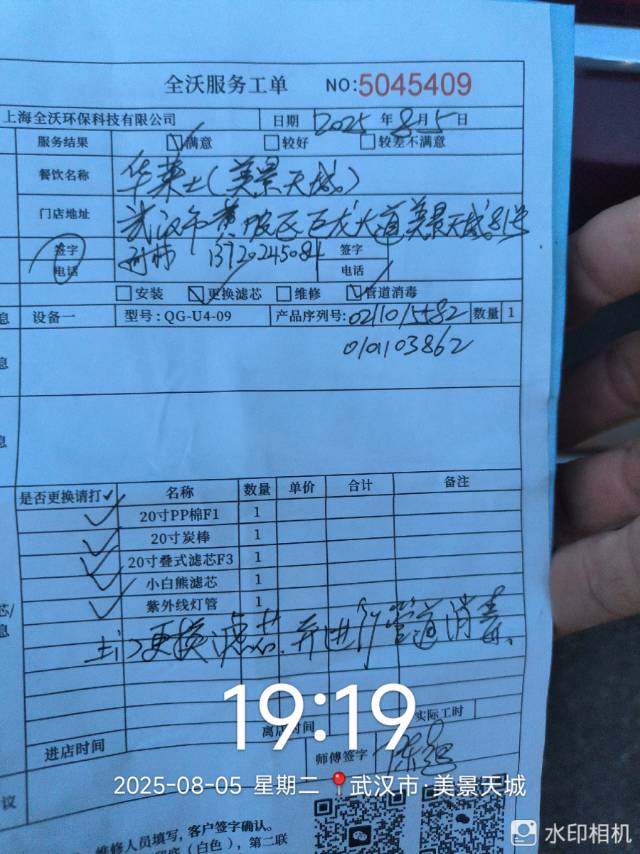 全沃服务工单 NO:5045409
上海全沃环保科技有限公司 日期 2025 年 8 月 5 日
服务结果 满意 较好 较差不满意
餐饮名称 华莱士(美景天城)
门店地址 武汉市黄陂区巨龙大道美景天城81号
签字 签字
电话 13720245084 电话
安装 更换滤芯 维修 管道消毒
息 设备一 型号:QG-U4-09 产品序列号: 0211015582 数量 1
0101103862
息
息
是否更换请打✓ 名称 数量 单价 合计 备注
✓ 20寸PP棉F1 1
✓ 20寸炭棒 1
✓ 20寸叠式滤芯F3 1
✓ 小白熊滤芯 1
芯/ ✓ 紫外线灯管 1
息
更换滤芯.并进行管道消毒.
19:19
进店时间 离店时间 实际工时
师傅签字
2025-08-05 星期二 武汉市·美景天城
议
维修人员填写,客户签字确认。
(白色),第二联
水印相机